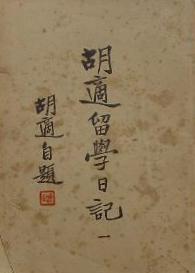 胡適留學日記 一
胡適自題